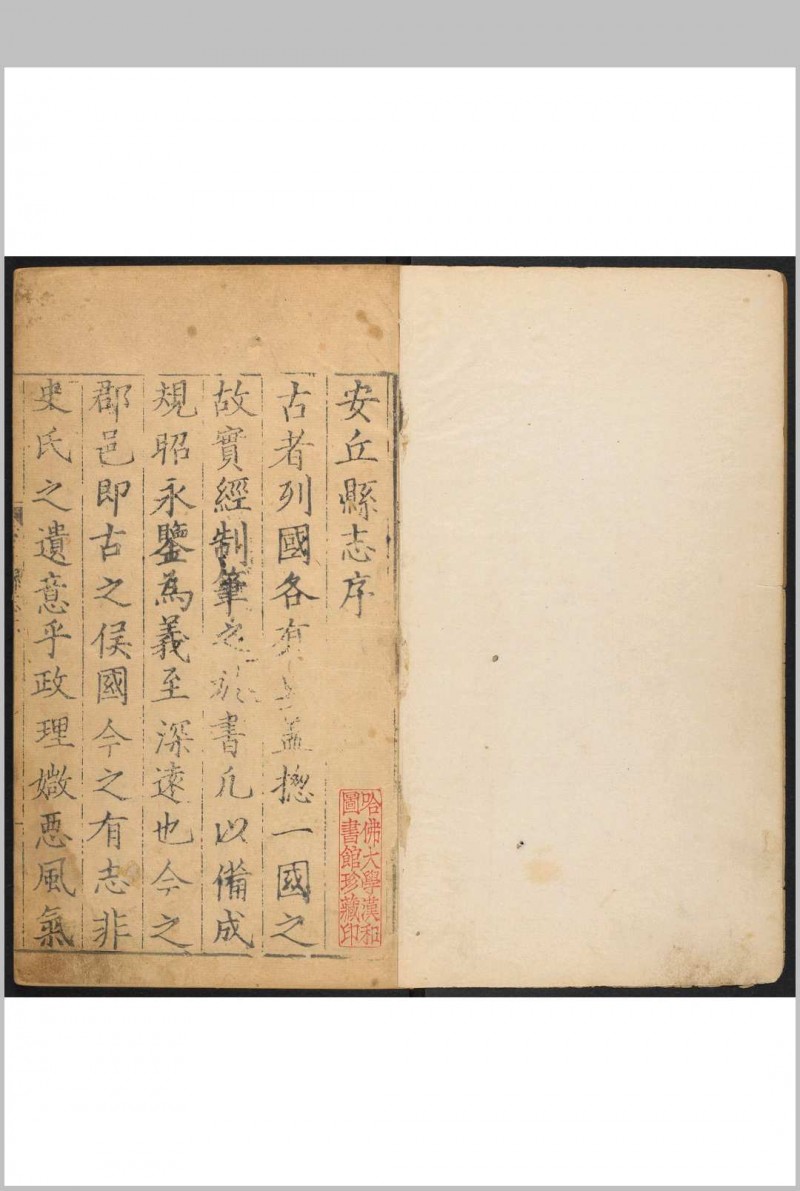 安丘縣志序
古者列國各有蓋揔一國之
故實經制筆之於書凡以備成
規昭永鑒為義至深遠也今之
郡邑即古之侯國今之有志非
史氏之遺意乎政理媺惡風氣
哈佛大學漢和
圖書館珍藏印